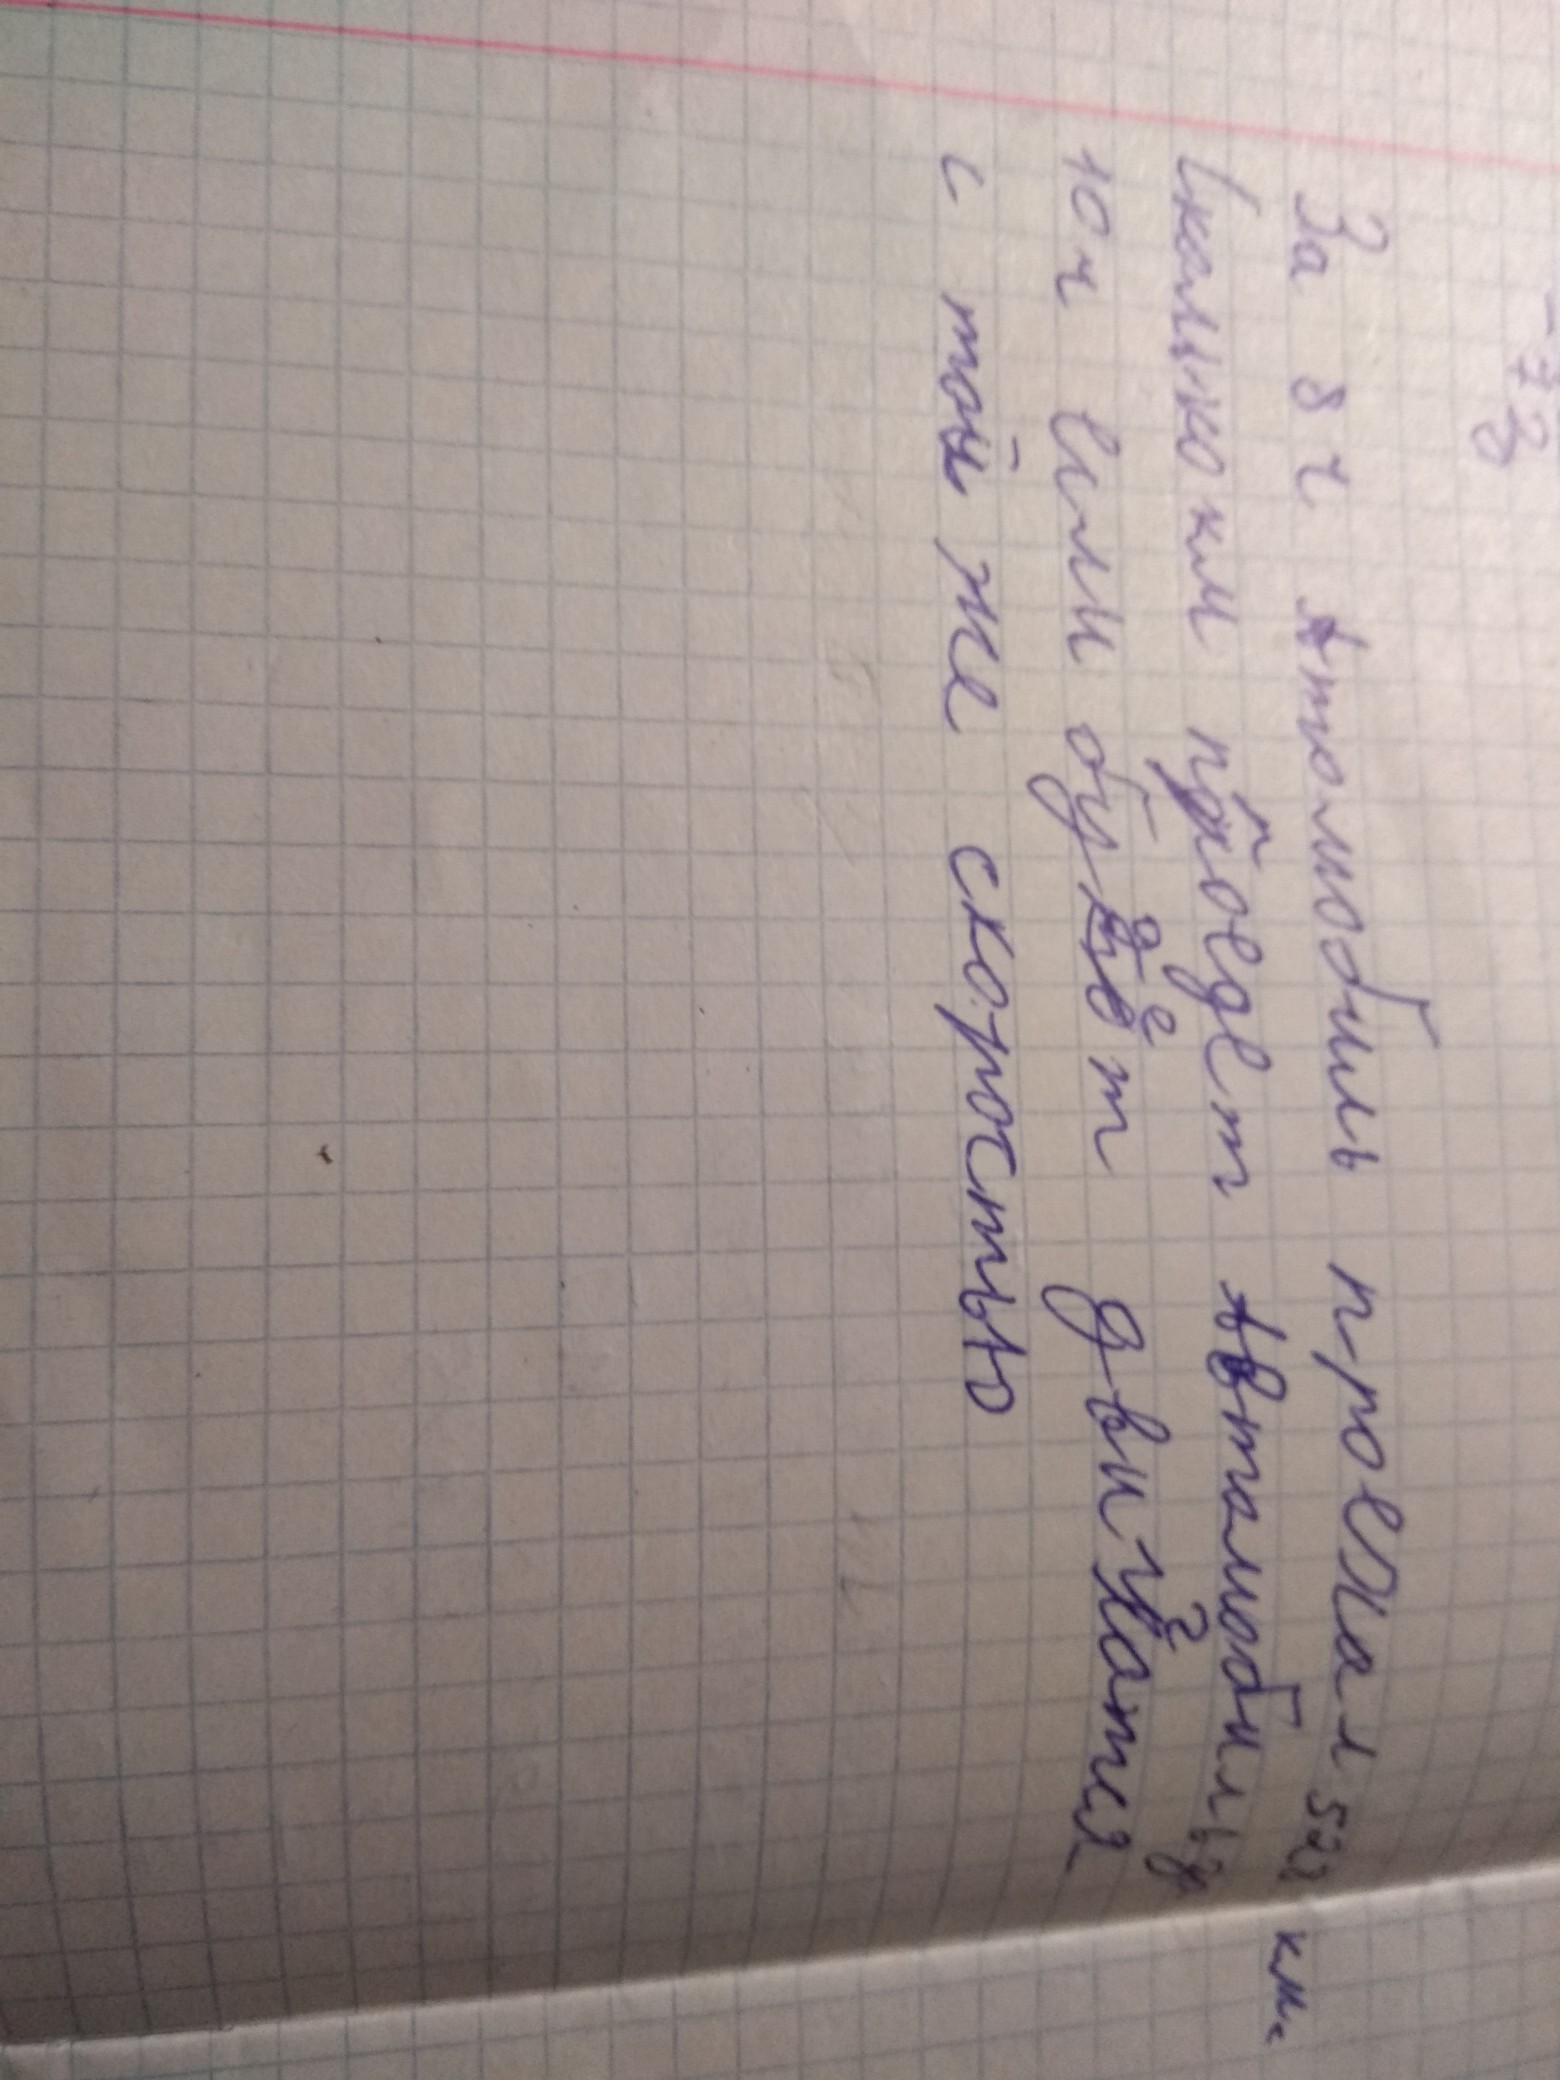 - 73
За 8 ч Автомобиль проехал км.
Сколько км проедет Автамобиль за
10 ч если будет двигатся
с той же скоростью